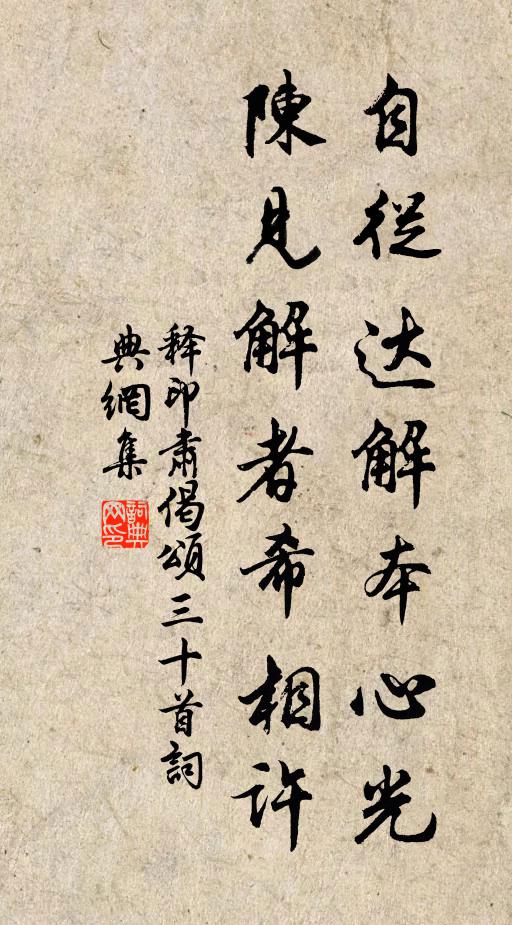 自從达解本心光
陳見解者希相許
释印肃偈頌三十首詞
典網集
詞典
网印